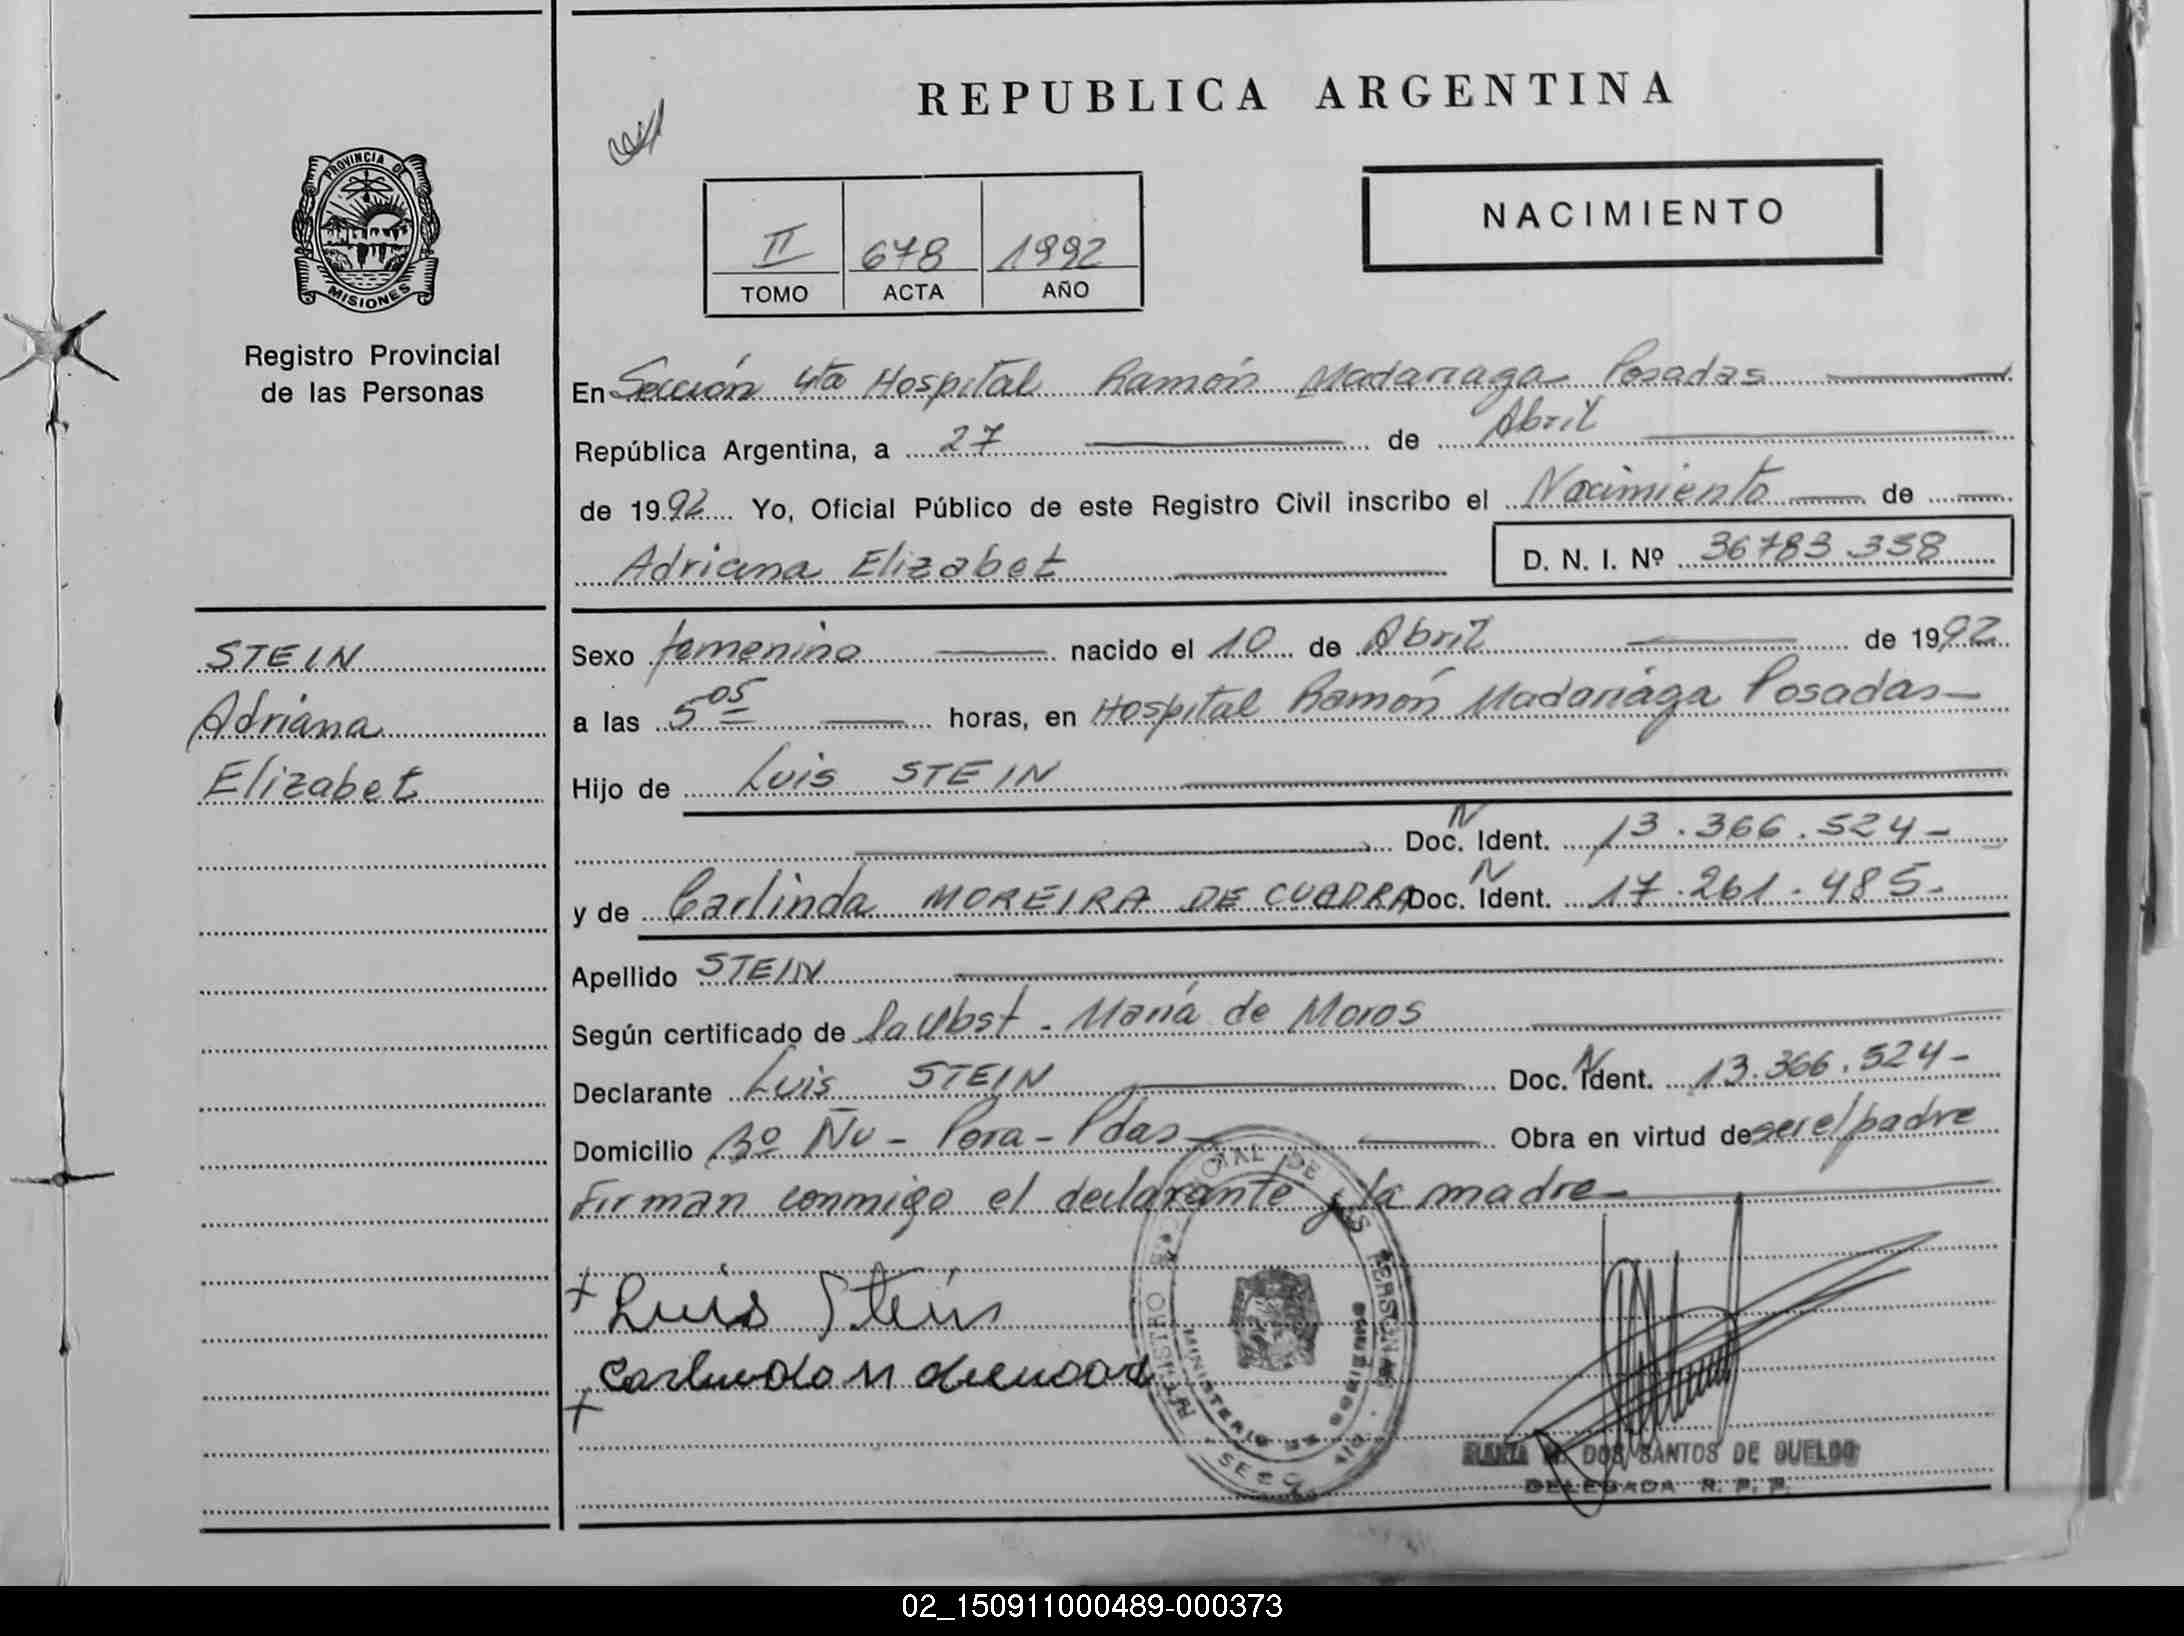 REPUBLICA ARGENTINA
NACIMIENTO
II 678 1992
TOMO ACTA AÑO
PROVINCIA DE
MISIONES
Registro Provincial
de las Personas
STEIN
Adriana
Elizabet
En Sección 4ta Hospital Ramón Madariaga Posadas
República Argentina, a 27 de Abril
de 1992 Yo, Oficial Público de este Registro Civil inscribo el Nacimiento de
Adriana Elizabet D. N. I. Nº 36783.338
Sexo femenino nacido el 10 de Abril de 1992
a las 5 05 horas, en Hospital Ramón Madariaga Posadas
Hijo de Luis STEIN
Doc. N Ident. 13.366.524-
y de Carlinda MOREIRA DE CUADRA Doc. N Ident. 17.261.485-
Apellido STEIN
Según certificado de la Obst. María de Moros
Declarante Luis STEIN Doc. N Ident. 13.366.524-
Domicilio Bº Ñu - Pora - Pdas Obra en virtud de ser el padre
Firman conmigo el declarante y la madre
Luis Stein
DOS SANTOS DE DUELOO
DELEGADA R. P. P.
02_150911000489-000373